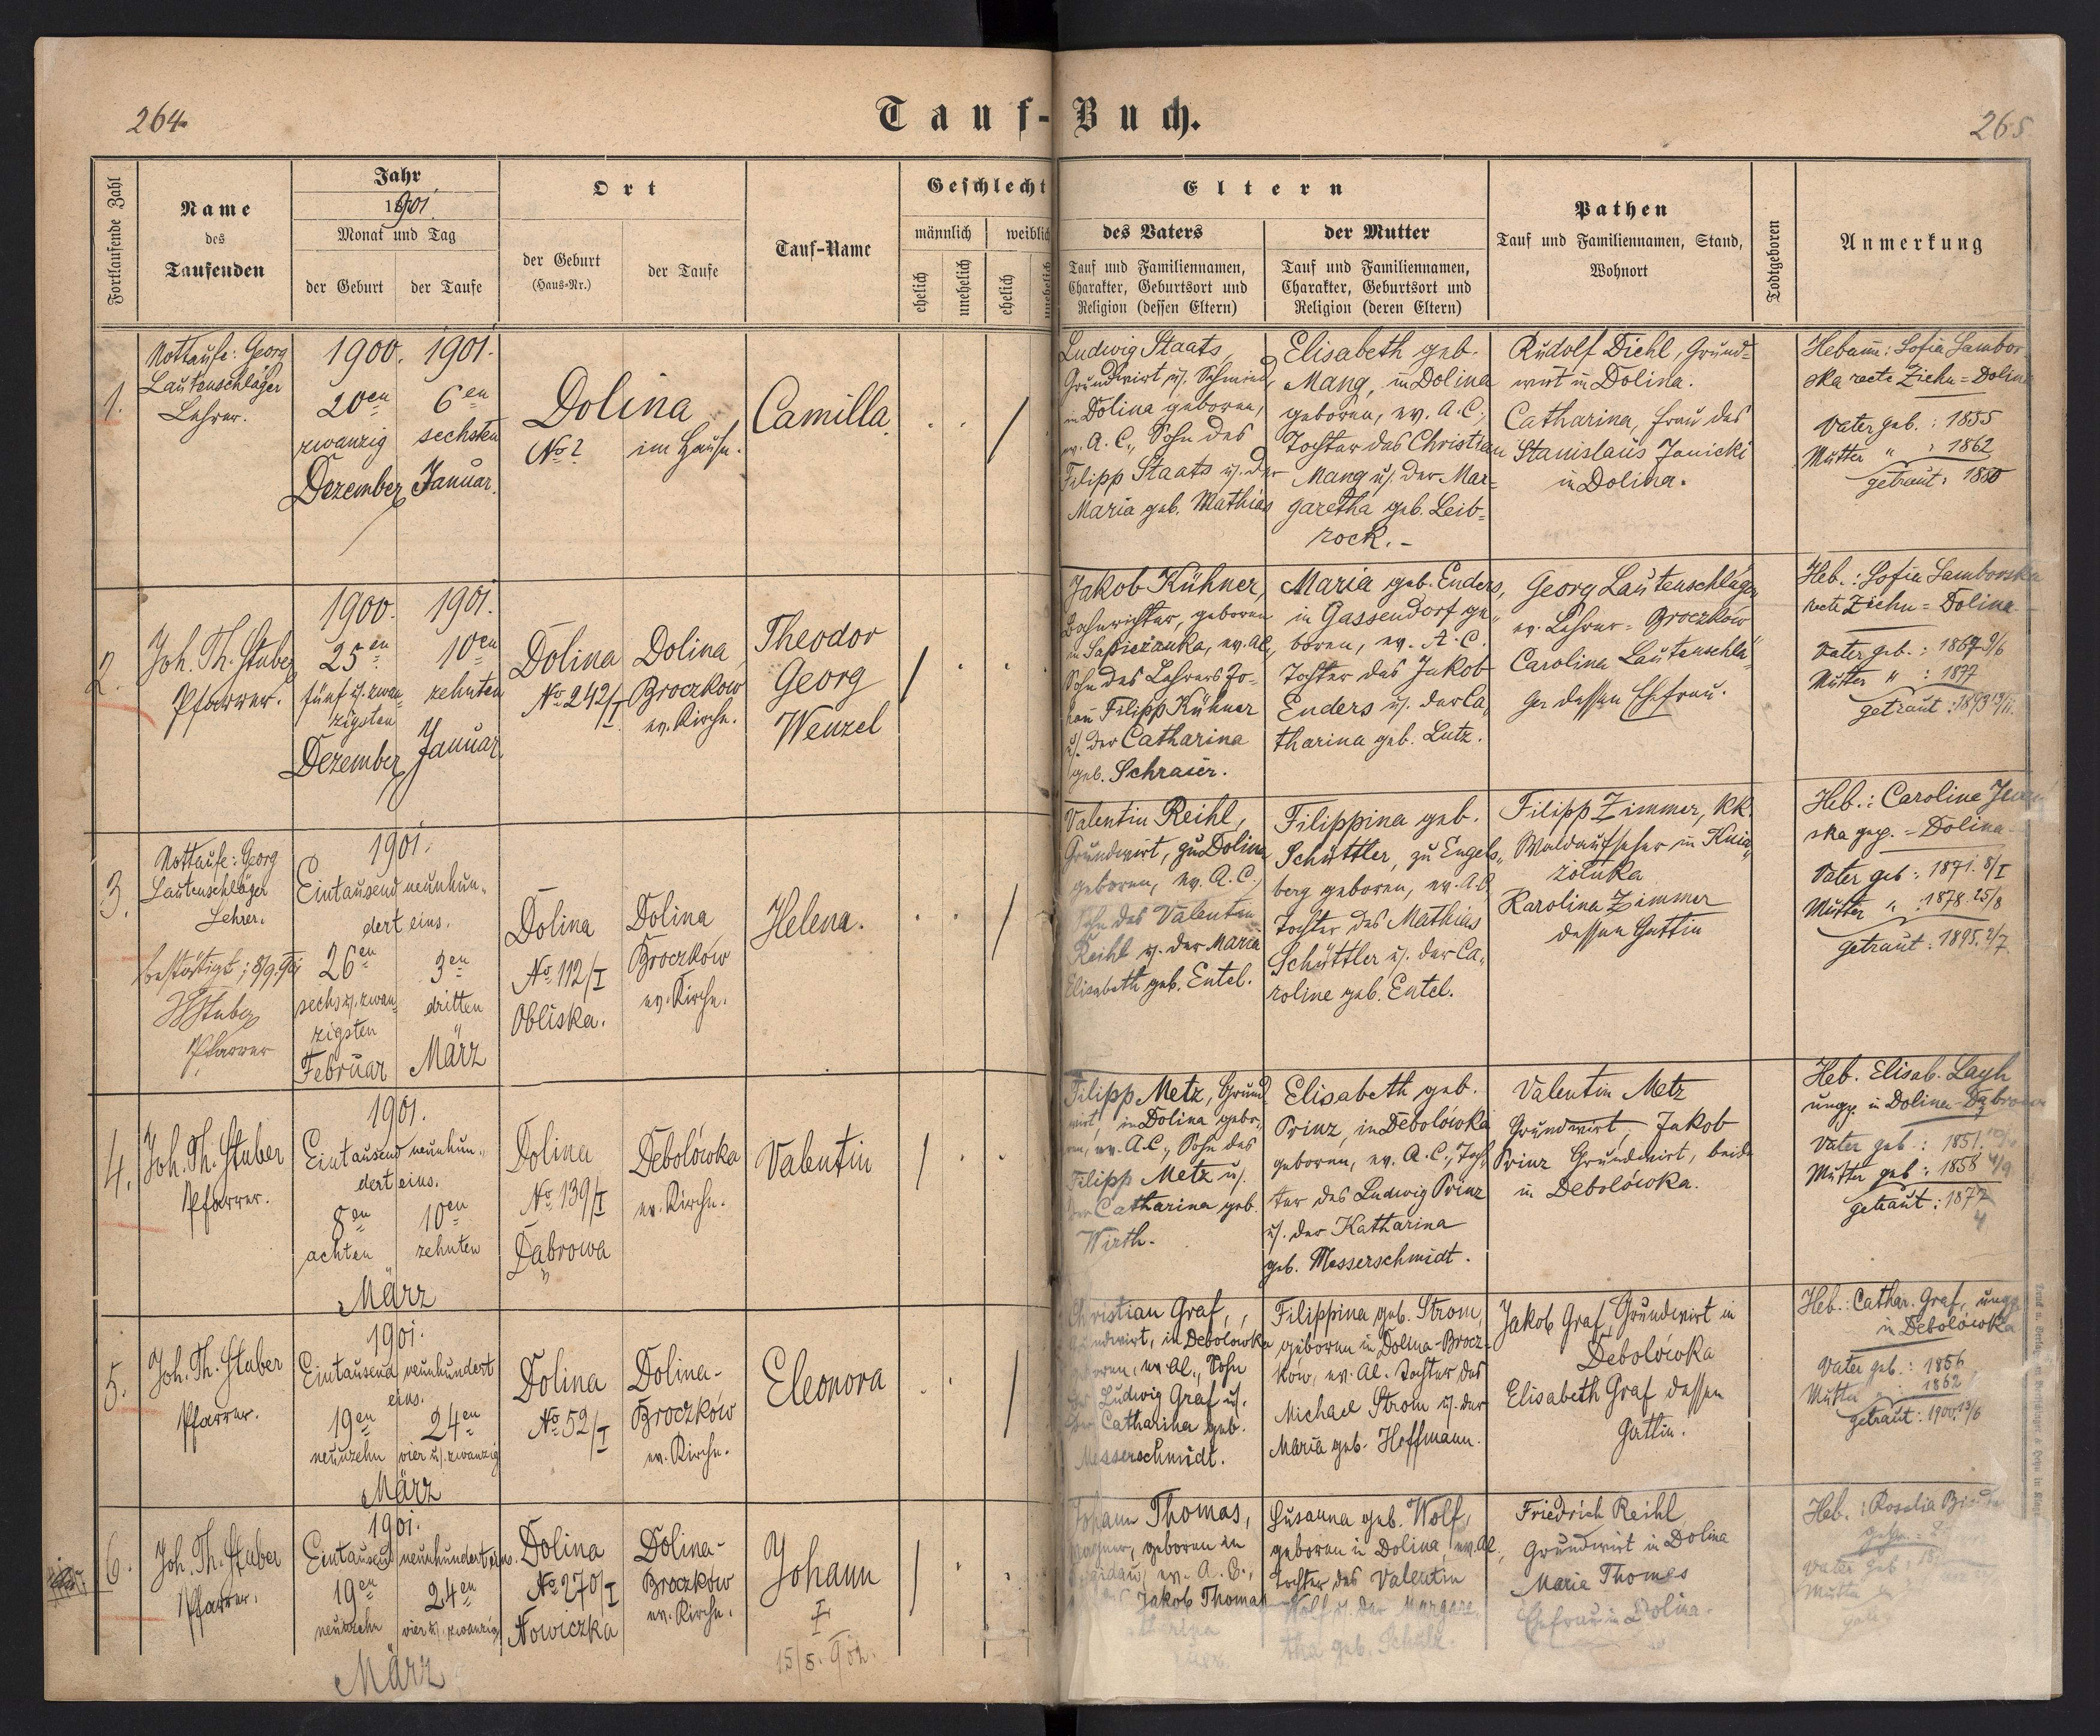 264.
Tauf-Buch.
265
Fortlaufende Zahl
Name
des
Taufenden
Jahr
1901.
Monat und Tag
der Geburt
der Taufe
Ort
der Geburt
(Haus-Nr.)
der Taufe
Tauf-Name
Geschlecht
männlich
weiblich
ehelich
unehelich
ehelich
unehelich
Eltern
des Vaters
Tauf und Familiennamen,
Charakter, Geburtsort und
Religion (dessen Eltern)
der Mutter
Tauf und Familiennamen,
Charakter, Geburtsort und
Religion (deren Eltern)
Pathen
Tauf und Familiennamen, Stand,
Wohnort
Todtgeboren
Anmerkung
1.
Nottaufe: Georg
Lautenschläger
Lehrer.
1900.
20en
zwanzig
Dezember
1901.
6en
sechsten
Januar.
Dolina
No ?
im Hause.
Camilla.
Ludwig Staats,
Grundwirt u. Schmied,
in Dolina geboren,
ev. A. C., Sohn des
Filipp Staats u. der
Maria geb. Mathias
Elisabeth geb.
Mang, in Dolina
geboren, ev. A. C.,
Tochter des Christian
Mang u. der Mar-
garetha geb. Leib-
rock.-
Rudolf Diehl, Grund-
wirt in Dolina.
Catharina, Frau des
Stanislaus Janicki
in Dolina.
Hebam: Sofia Sambor
ska recte Ziehn = Dolina
Vater geb.: 1855
Mutter " : 1862
getraut: 1880
2.
Joh. Th. Stuber
Pfarrer.
1900.
25en
fünf u. zwan-
zigsten
Dezember
1901.
10en
zehnten
Januar
Dolina
No 242/I
Dolina
Broczkow
ev. Kirche.
Theodor
Georg
Wenzel
Jakob Kühner,
Bahnrichter, geboren
in Sapiezanka, ev. Al.,
Sohn des Lehrers Jo-
hann Filipp Kühner
u. der Catharina
geb. Schraier.
Maria geb. Enders,
in Gassendorf ge-
boren, ev. A. C.
Tochter des Jakob
Enders u. der Ca-
tharina geb. Lutz.
Georg Lautenschläger
ev. Lehrer = Broczków
Carolina Lautenschlä-
ger dessen Ehefrau.
Heb.: Sofia Samborska
recte Ziehn = Dolina
Vater geb.: 1867 9/6
Mutter " : 1877
getraut: 1893 13/11.
3.
Nottaufe: Georg
Lautenschläger
Lehrer.
bestätigt: 8/9. 901
Stuber
Pfarrer
1901.
Eintausend neunhun-
dert eins.
26en
sechs u. zwan-
zigsten
Februar
3en
dritten
März
Dolina
No 112/I
Obliska.
Dolina
Broczków
ev. Kirche.
Helena.
Valentin Reihl,
Grundwirt, zu Dolina
geboren, ev. A. C.,
Sohn des Valentin
Reihl u. der Maria
Elisabeth geb. Entel.
Filippina geb.
Schüttler, zu Engels-
berg geboren, ev. A. C.
Tochter des Mathias
Schüttler u. der Ca-
roline geb. Entel.
Filipp Zimmer, kk.
Waldaufseher in Knia-
zoluka
Karolina Zimmer
dessen Gattin
Heb.: Caroline
ska gep. = Dolina
Vater geb.: 1871. 8/I
Mutter " : 1878. 25/8
getraut: 1895. 2/7.
4.
Joh. Th. Stuber
Pfarrer.
1901.
Eintausend neunhun-
dert eins.
8en
achten
10en
zehnten
März
Dolina
No 139/I
Dąbrowa
Debolówka
ev. Kirche.
Valentin
Filipp Metz, Grund-
wirt, in Dolina gebo-
ren, ev. A. C., Sohn des
Filipp Metz u.
der Catharina geb.
Wirth.
Elisabeth geb.
Prinz, in Debolówka
geboren, ev. A. C., Toch-
ter des Ludwig Prinz
u. der Katharina
geb. Messerschmidt.
Valentin Metz
Grundwirt, Jakob
Prinz Grundwirt, beide
in Debolówka.
Heb. Elisab. Layh
ungp. in Dolina-Dąbrowa
Vater geb.: 1851.
Mutter geb.: 1858 4/9
getraut: 1877
5.
Joh. Th. Stuber
Pfarrer.
1901.
Eintausend neunhundert
eins.
19en
neunzehn
24en
vier u. zwanzig
März
Dolina
No 52/I
Dolina-
Broczków
ev. Kirche.
Eleonora
Christian Graf,
Grundwirt, in Debolowka
geboren, ev. Al., Sohn
des Ludwig Graf u.
der Catharina geb.
Messerschmidt.
Filippina geb. Strom,
geboren in Dolina-Brocz-
ków, ev. Al. Tochter des
Michael Strom u. der
Maria geb. Hoffmann.
Jakob Graf, Grundwirt in
Debolówka
Elisabeth Graf dessen
Gattin.
Heb.: Cathar. Graf, ungp.
in Debolówka
Vater geb.: 1856
Mutter : 1862
getraut: 1900. 13/6
6.
Joh. Th. Stuber
Pfarrer.
1901.
Eintausend neunhundert eins.
19en
neunzehn
24en
vier u. zwanzig
März
Dolina
No 270/I
Nowiczka
Dolina-
Broczków
ev. Kirche.
Johann
15/8. 902.
Johann Thomas,
Wagner, geboren in
ev. A. C.,
Jakob Thomas
Susanna geb. Wolf,
geboren in Dolina, ev. Al.,
Tochter des Valentin
Wolf u. der Margare-
tha geb. Schulz.
Friedrich Reihl
Grundwirt in Dolina
Maria Thomas
Ehefrau in Dolina.
Heb.: Rosalia
Vater geb:
Mutter